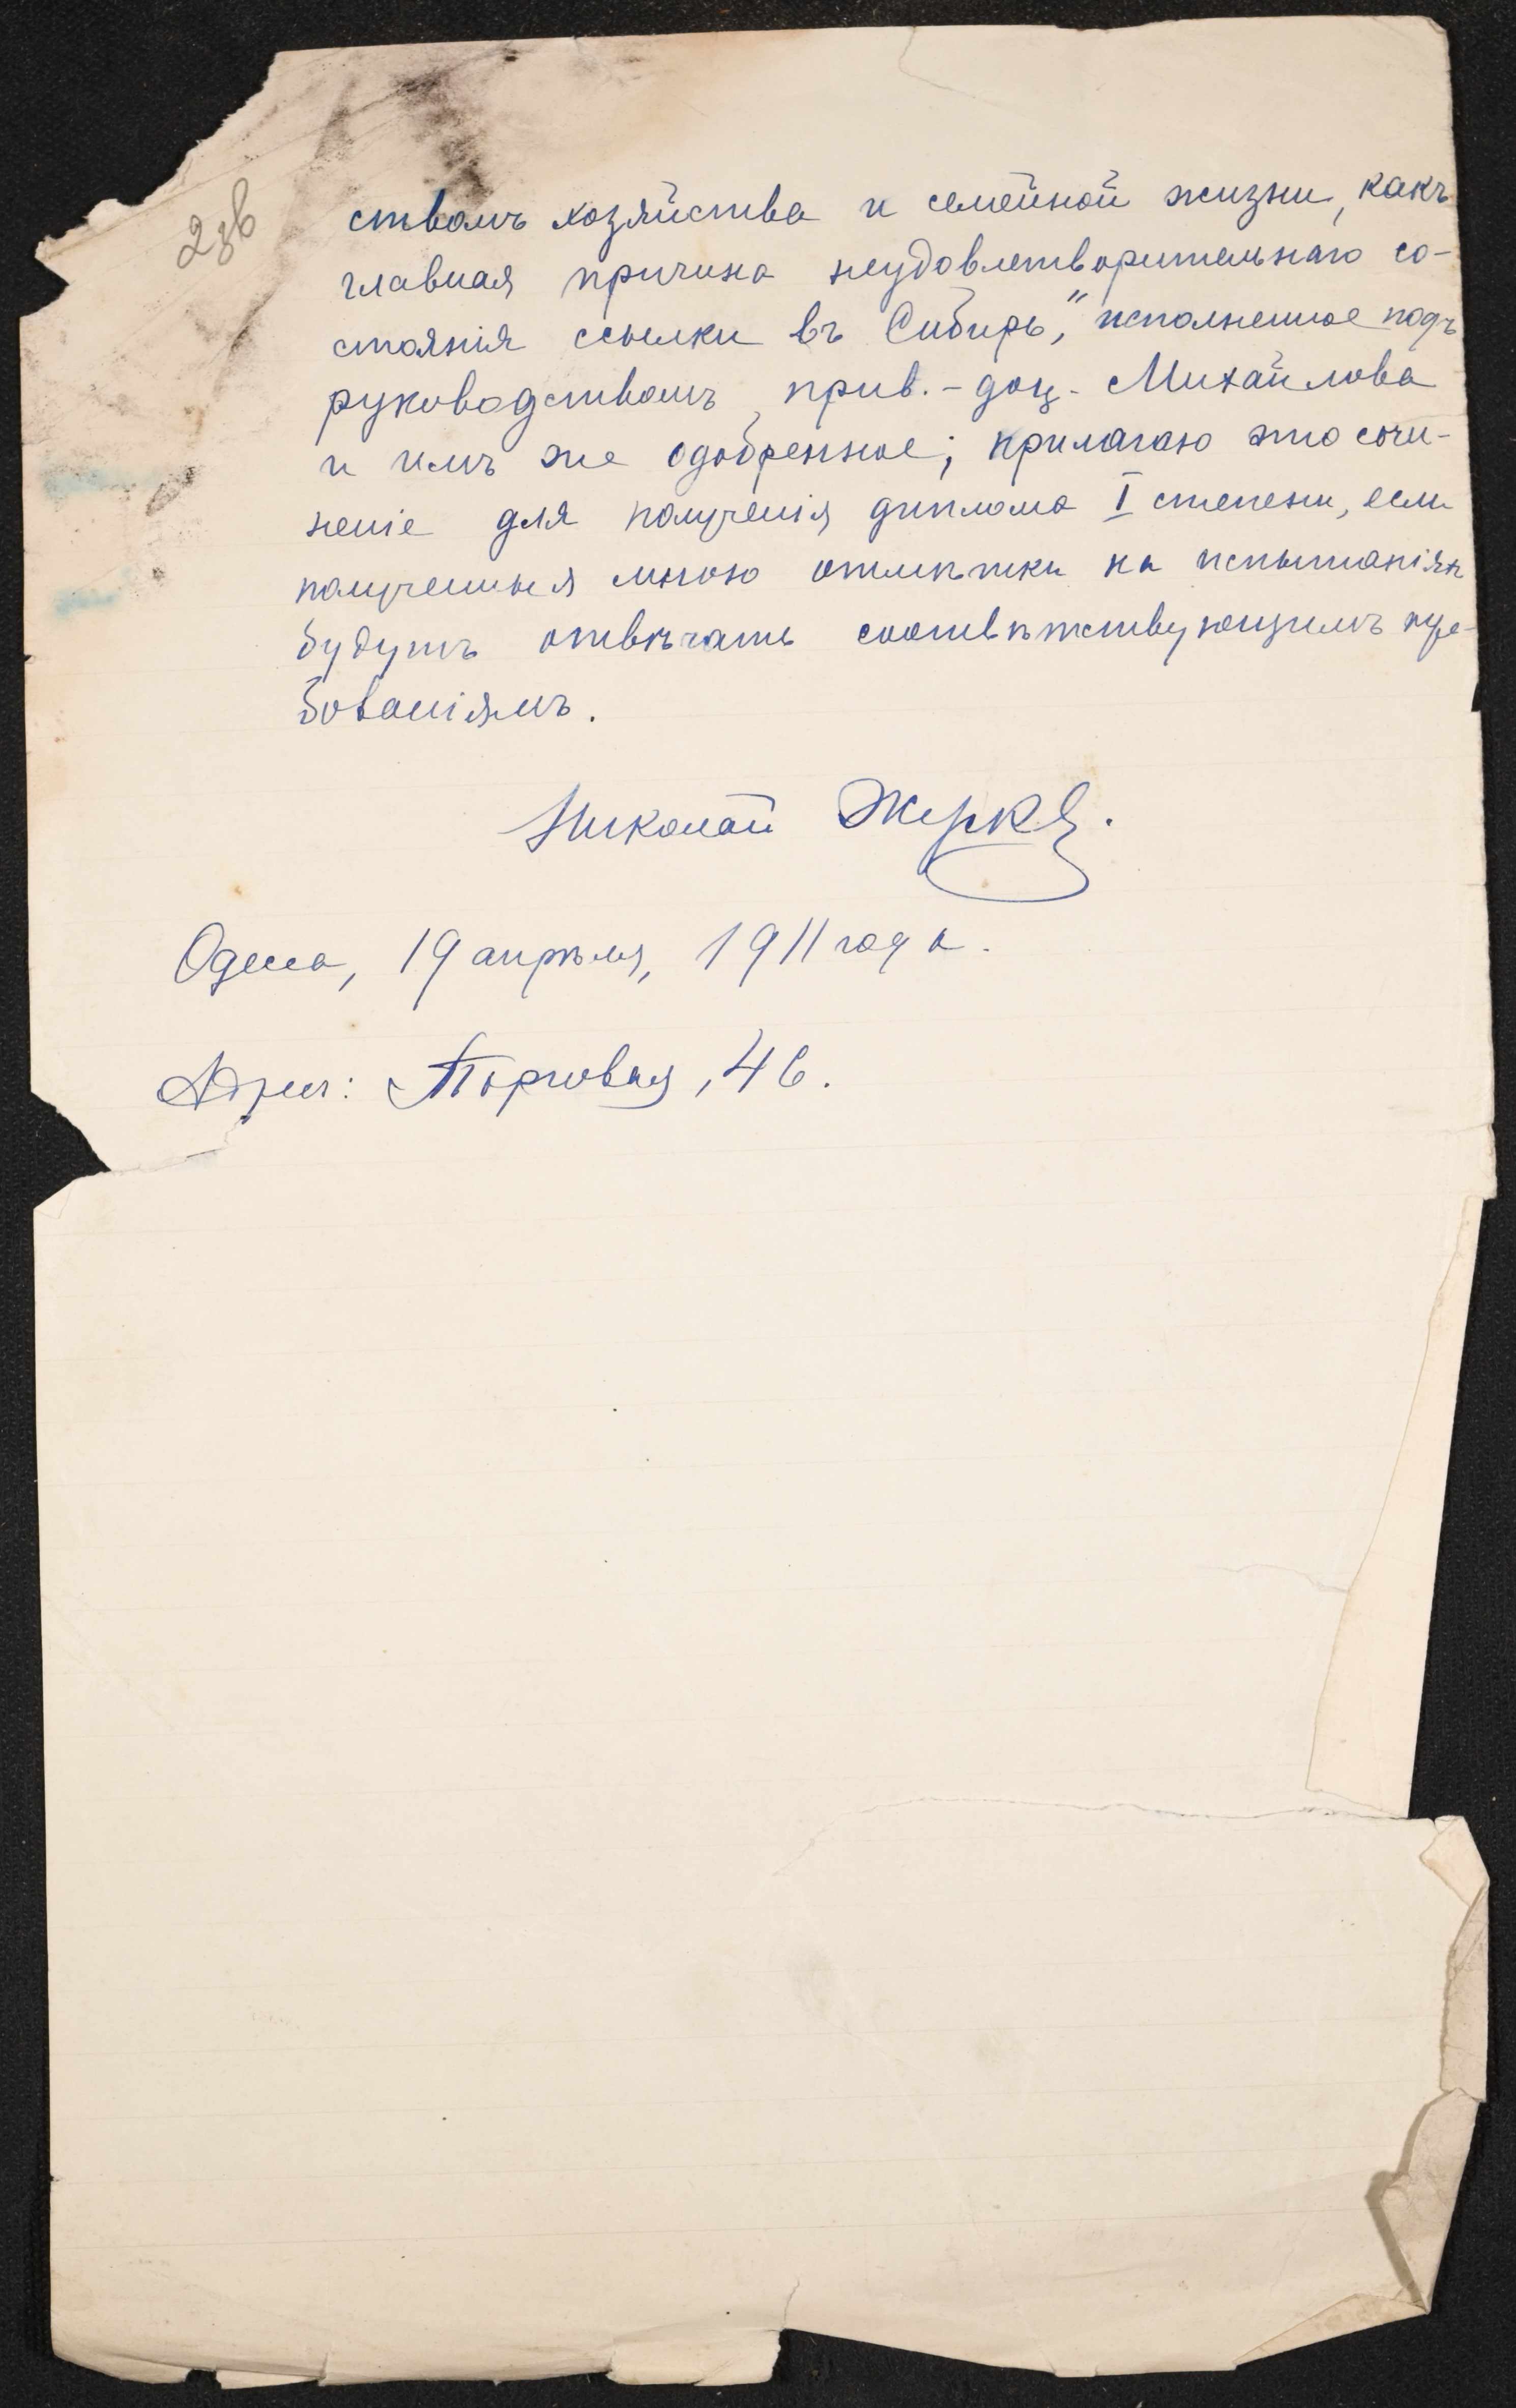 23в
ствомъ хозяйства и семейной жизни, какъ
главная причина неудовлетворительнаго со-
стоянія ссылки въ Сибирь," исполненное подъ
руководствомъ прив.-доц. Михайлова
и имъ же одобренное; прилагаю это сочи-
неніе для полученія диплома I степени, если
полученныя мною отмѣтки на испытаніяхъ
будутъ отвѣчать соотвѣтствующимъ тре-
бованіямъ.
Николай
Одесса, 19 апрѣля, 1911 года.
Адресъ: Торговая, 46.